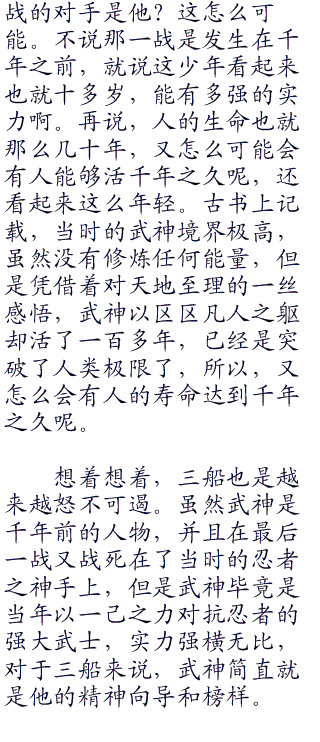 战的对手是他？这怎么可
能。不说那一战是发生在千
年之前，就说这少年看起来
也就十多岁，能有多强的实
力啊。再说，人的生命也就
那么几十年，又怎么可能会
有人能够活千年之久呢，还
看起来这么年轻。古书上记
载，当时的武神境界极高，
虽然没有修炼任何能量，但
是凭借着对天地至理的一丝
感悟，武神以区区凡人之躯
却活了一百多年，已经是突
破了人类极限了，所以，又
怎么会有人的寿命达到千年
之久呢。
想着想着，三船也是越
来越怒不可遏。虽然武神是
千年前的人物，并且在最后
一战又战死在了当时的忍者
之神手上，但是武神毕竟是
当年以一己之力对抗忍者的
强大武士，实力强横无比，
对于三船来说，武神简直就
是他的精神向导和榜样。